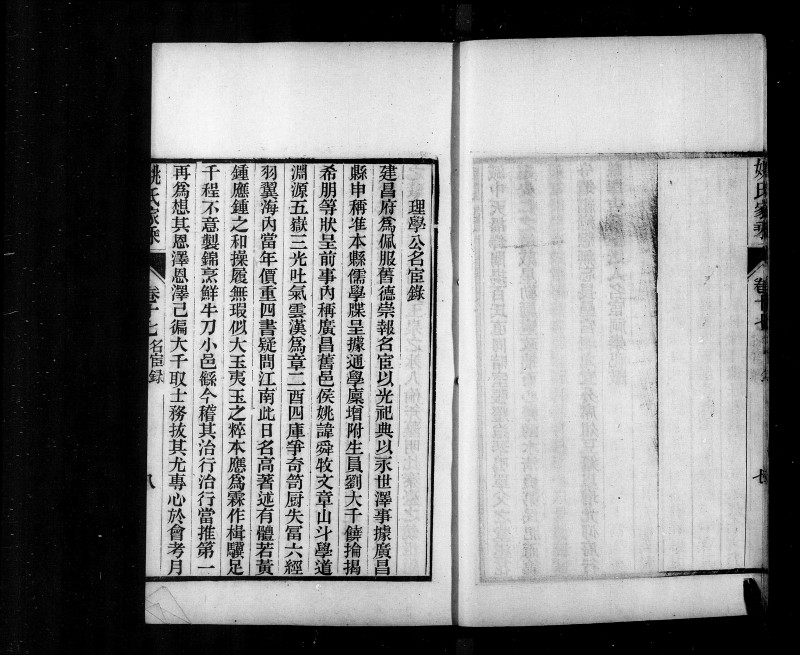 理學公名宦錄
建昌府爲佩服舊德崇報名宦以光祀典以永世澤事據廣昌
縣申稱准本縣儒學牒呈據通學廩增附生員劉大千饒掄揭
希朋等狀呈前事內稱廣昌舊邑侯姚諱舜牧文章山斗學道
淵源五嶽三光吐氣雲漢爲章二酉四庫爭奇笥厨失富六經
羽翼海內當年價重四書疑問江南此日名高著述有體若黃
鍾應鍾之和操履無瑕似大玉夷玉之粹本應爲霖作楫驥足
千程不意製錦烹鮮牛刀小邑繇今稽其治行治行當推第一
再爲想其恩澤恩澤已徧大千取士務拔其尤專心於會考月
姚氏家乘
卷十七
名宦錄
八
姚氏家乘
卷十七